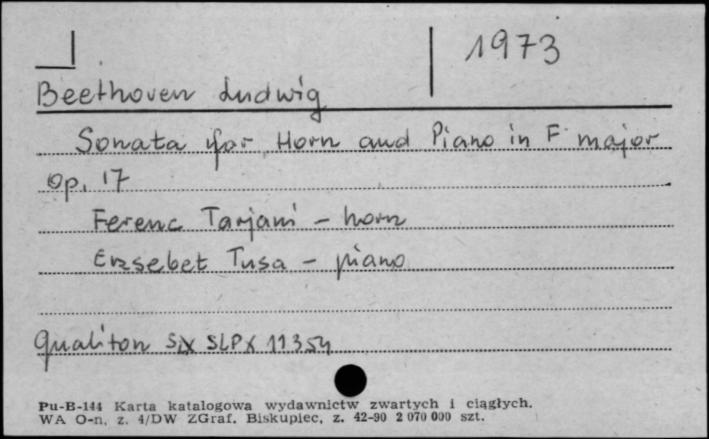 1973
Beethoven Ludwig
Sonata for Horn and Piano in F major
op. 17
Ferenc Tarjani - horn
Erzsebet Tusa - piano
Qualiton SLPX 11354
Pu-B-144 Karta katalogowa wydawnictw zwartych i ciągłych.
WA O-n, z. 4/DW ZGraf. Biskupiec, z. 42-90 2 070 000 szt.